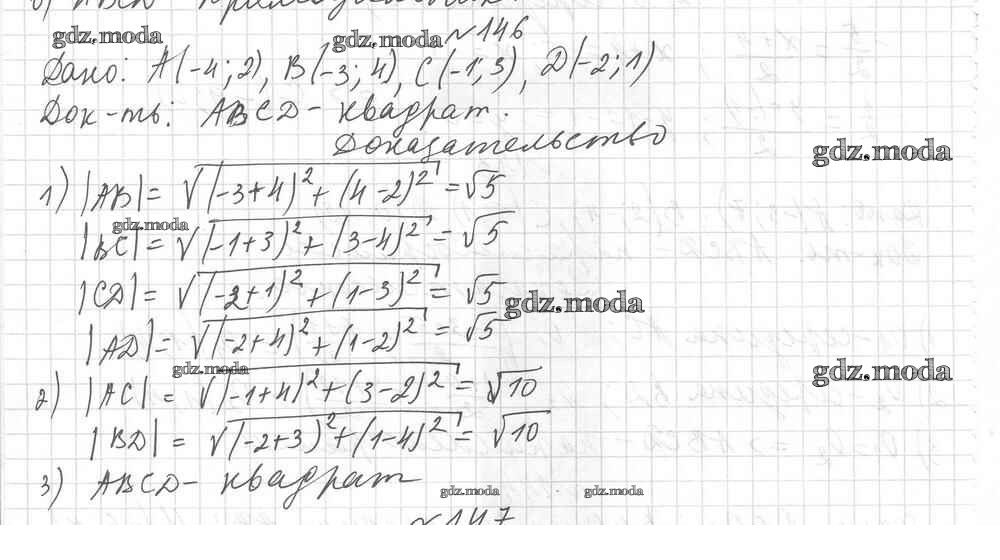 б) ABCD - прямоугольник.
№146
gdz.moda gdz.moda
Дано: A(-4; 2), B(-3; 4), C(-1; 3), D(-2; 1)
Док-ть: ABCD - квадрат.
Доказательство
gdz.moda
1) |AB| = √((-3+4)² + (4-2)²) = √5
gdz.moda
|BC| = √((-1+3)² + (3-4)²) = √5
|CD| = √((-2+1)² + (1-3)²) = √5
gdz.moda
|AD| = √((-2+4)² + (1-2)²) = √5
gdz.moda gdz.moda
2) |AC| = √((-1+4)² + (3-2)²) = √10
|BD| = √((-2+3)² + (1-4)²) = √10
3) ABCD - квадрат
gdz.moda gdz.moda
№147